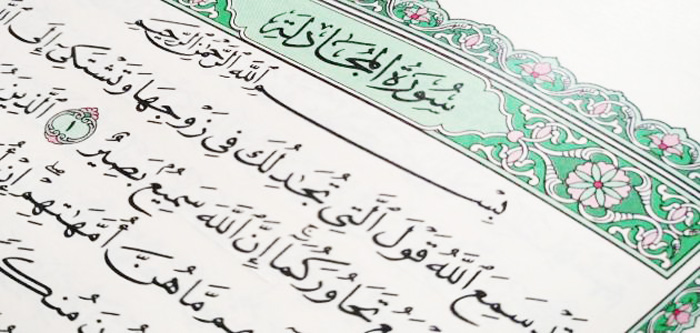 سُورَةُ المُجَادلَةِ
بِسْمِ ٱللَّهِ ٱلرَّحْمَٰنِ ٱلرَّحِيمِ
سَمِعَ ٱللَّهُ قَوْلَ ٱلَّتِى تُجَٰدِلُكَ فِى زَوْجِهَا وَتَشْتَكِىٓ إِلَى
تَحَاوُرَكُمَآ إِنَّ ٱللَّهَ سَمِيعُۢ بَصِيرٌ ١ ٱلَّذِينَ
مَّا هُنَّ أُمَّهَٰتِهِمْ إِنْ